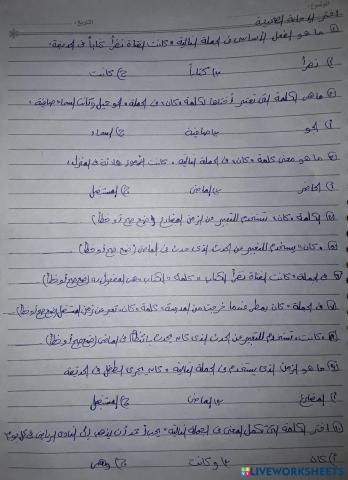 الموضوع: التاريخ:
اختر الاجابة الصحيحة
① ما هو الفعل الأساسي فى الجملة التالية "كانت الفتاة تقرأ كتاباً فى الحديقة"
أ) تقرأ ب) كتاباً ج) كانت
② ما هى الكلمة التى تعتبر لكلمة "كان" فى الجملة "الجو جميل وكانت السماء صافية"
أ) الجو ب) صافية ج) السماء
③ ما هو معنى كلمة "كان" فى الجملة التالية "كانت هادئة فى المنزل"
أ) الحاضر ب) الماضى ج) المستقبل
④ الكلمة "كان" تستخدم للتعبير عن الزمن المضارع (ضع صح أو خطأ)
⑤ "كان" يستخدم للتعبير عن الحدث الذى حدث فى الماضى (ضع صح أو خطأ)
⑥ فى الجملة "كانت الفتاة تقرأ الكتاب" كلمة "الكتاب" هى المفعول به (ضع صح أو خطأ)
⑦ فى الجملة "كان يمطر عندما خرجت من المدرسة" كلمة "كان" تعبر عن زمن المستقبل (ضع صح أو خطأ)
⑧ "كانت" تستخدم للتعبير عن الحدث الذى كان يحدث فى الماضى (ضع صح أو خطأ)
⑨ ما هو الزمن الذى يستخدم فى الجملة التالية "كان يجرى الطفل فى الحديقة"
أ) المضارع ب) الماضى ج) المستقبل
⑩ اختر الكلمة التى تكمل المعنى فى الجملة التالية أن يذهب إلى النادى الرياضى فى كل يوم
أ) كان ب) وكانت ج) وهى
LIVEWORKSHEETS